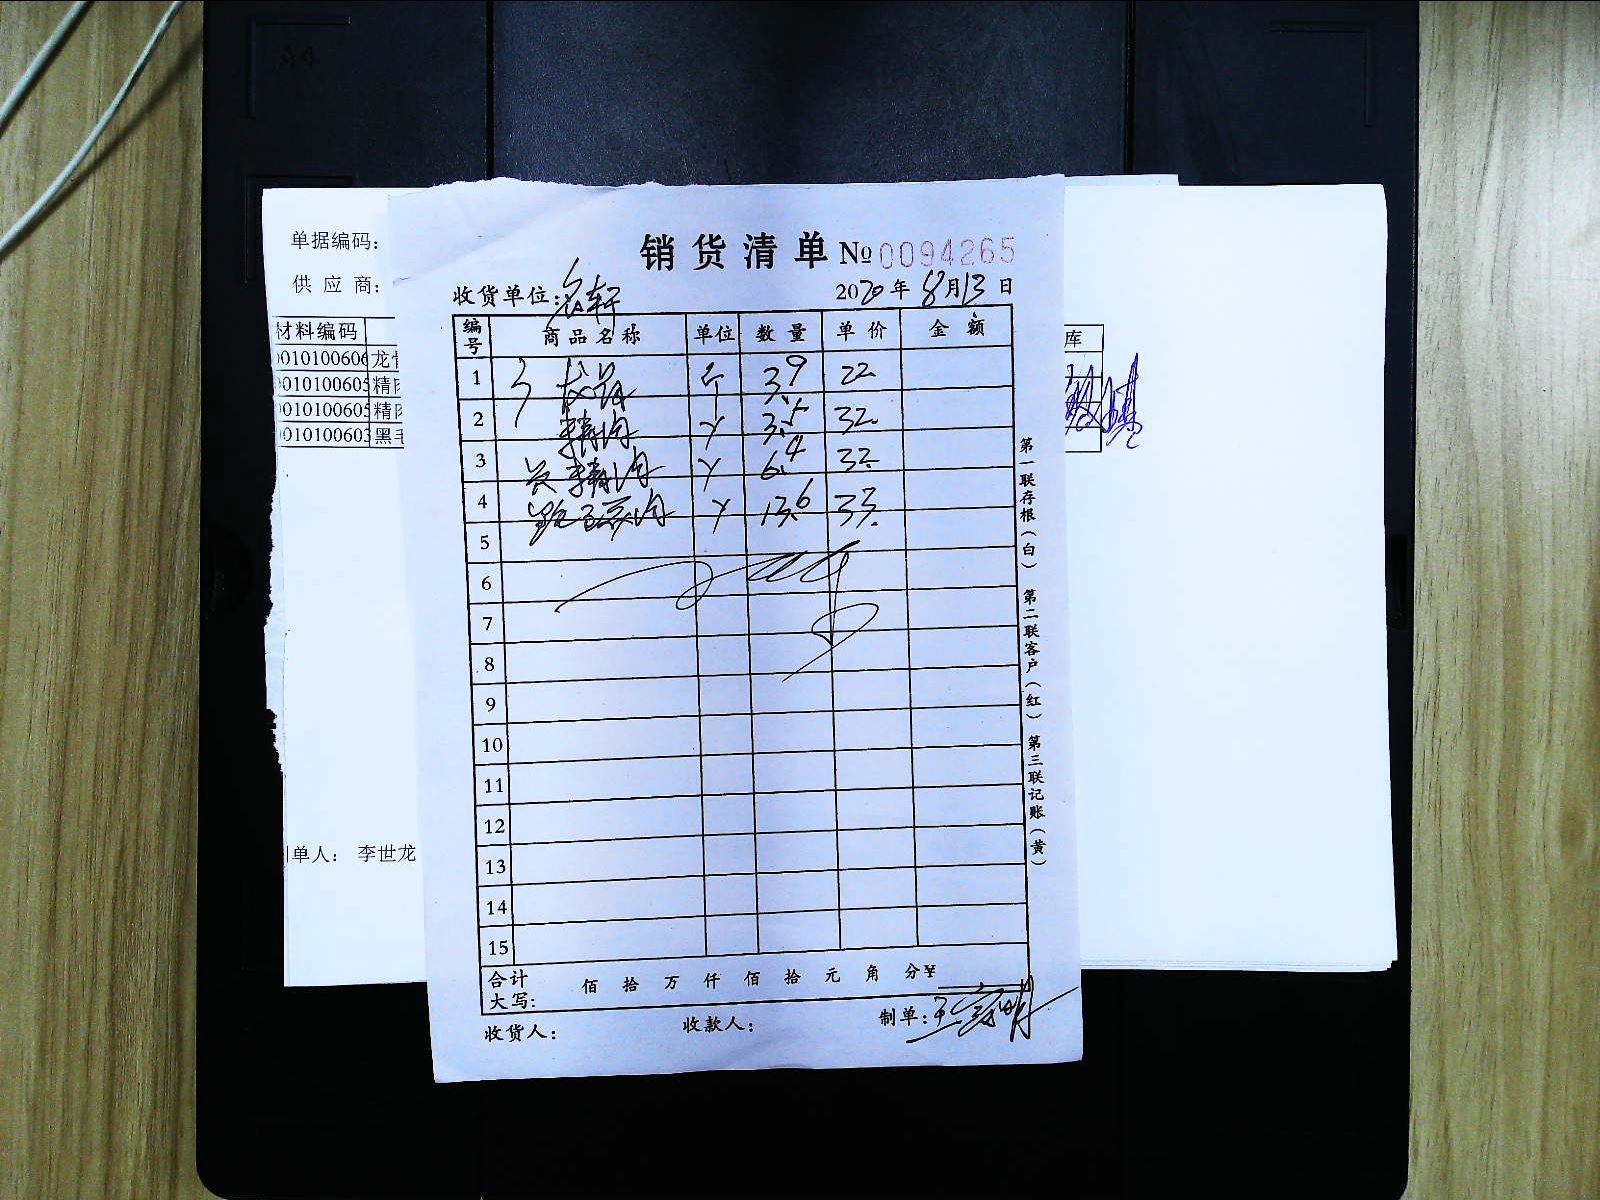 单据编码:
供 应 商:
材料编码
0010100606 龙骨
0010100605 精肉
0010100605 精肉
0010100603 黑毛
库
制单人: 李世龙
销货清单 № 0094265
收货单位: 名轩 2020年8月13日
编号 商品名称 单位 数量 单价 金额
1 龙骨 斤 3.9 22
2 精肉 3.5 32
3 精肉 6.4 32
4 肉 13.6 33
5
6
7
8
9
10
11
12
13
14
15
合计大写: 佰 拾 万 仟 佰 拾 元 角 分 ¥
收货人: 收款人: 制单:
第一联存根(白) 第二联客户(红) 第三联记账(黄)